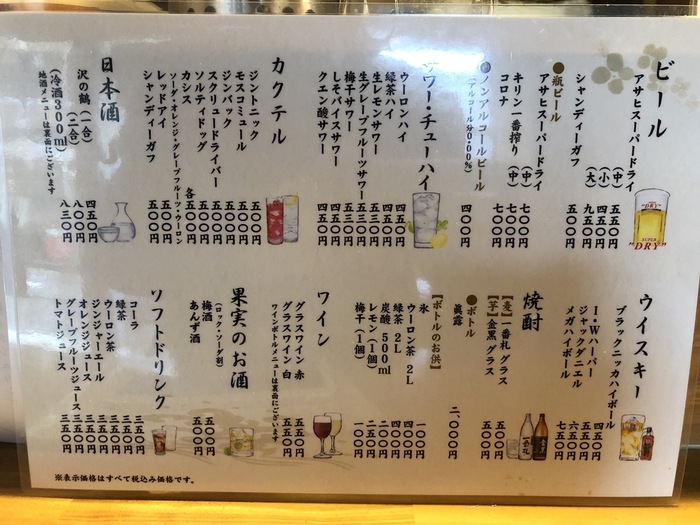 ビール
アサヒスーパードライ
(中) 五五〇円
(小) 四五〇円
(大) 九五〇円
シャンディーガフ 五〇〇円
●瓶ビール
アサヒスーパードライ
キリン一番搾り (中) 七〇〇円
コロナ 七〇〇円
●ノンアルコールビール
(アルコール分0.00%) 四〇〇円
サワー・チューハイ
ウーロンハイ 四五〇円
緑茶ハイ 四五〇円
生レモンサワー 五三〇円
生グレープフルーツサワー 五三〇円
梅干サワー 四五〇円
しそバイスサワー 四五〇円
クエン酸サワー 四五〇円
カクテル
ジントニック 五〇〇円
モスコミュール 五〇〇円
ジンバック 五〇〇円
スクリュードライバー 五〇〇円
ソルティドッグ 五〇〇円
カシス 各五〇〇円
ソーダ・オレンジ・グレープフルーツ・ウーロン
レッドアイ 五〇〇円
シャンディーガフ 五〇〇円
日本酒
沢の鶴 (一合) 四五〇円
(二合) 八〇〇円
(冷酒300ml) 八三〇円
地酒メニューは裏面にございます
DRY
SUPER
"DRY"
ウイスキー
ブラックニッカハイボール 四五〇円
I・Wハーパー 五五〇円
ジャックダニエル 六五〇円
メガハイボール 七五〇円
焼酎
【麦】一番札 グラス 五〇〇円
【芋】金黒 グラス 五〇〇円
●ボトル
眞露 二、〇〇〇円
【ボトルのお供】
氷 一〇〇円
ウーロン茶 2L 四〇〇円
緑茶 2L 四〇〇円
炭酸 500ml 二〇〇円
レモン(1個) 二五〇円
梅干(1個) 一〇〇円
ワイン
グラスワイン 赤 五五〇円
グラスワイン 白 五五〇円
ワインボトルメニューは裏面にございます
果実のお酒
(ロック・ソーダ割)
梅酒 五〇〇円
あんず酒 五〇〇円
ソフトドリンク
コーラ 三五〇円
緑茶 三五〇円
ウーロン茶 三五〇円
ジンジャーエール 三五〇円
オレンジジュース 三五〇円
グレープフルーツジュース 三五〇円
トマトジュース 三五〇円
※表示価格はすべて税込み価格です。